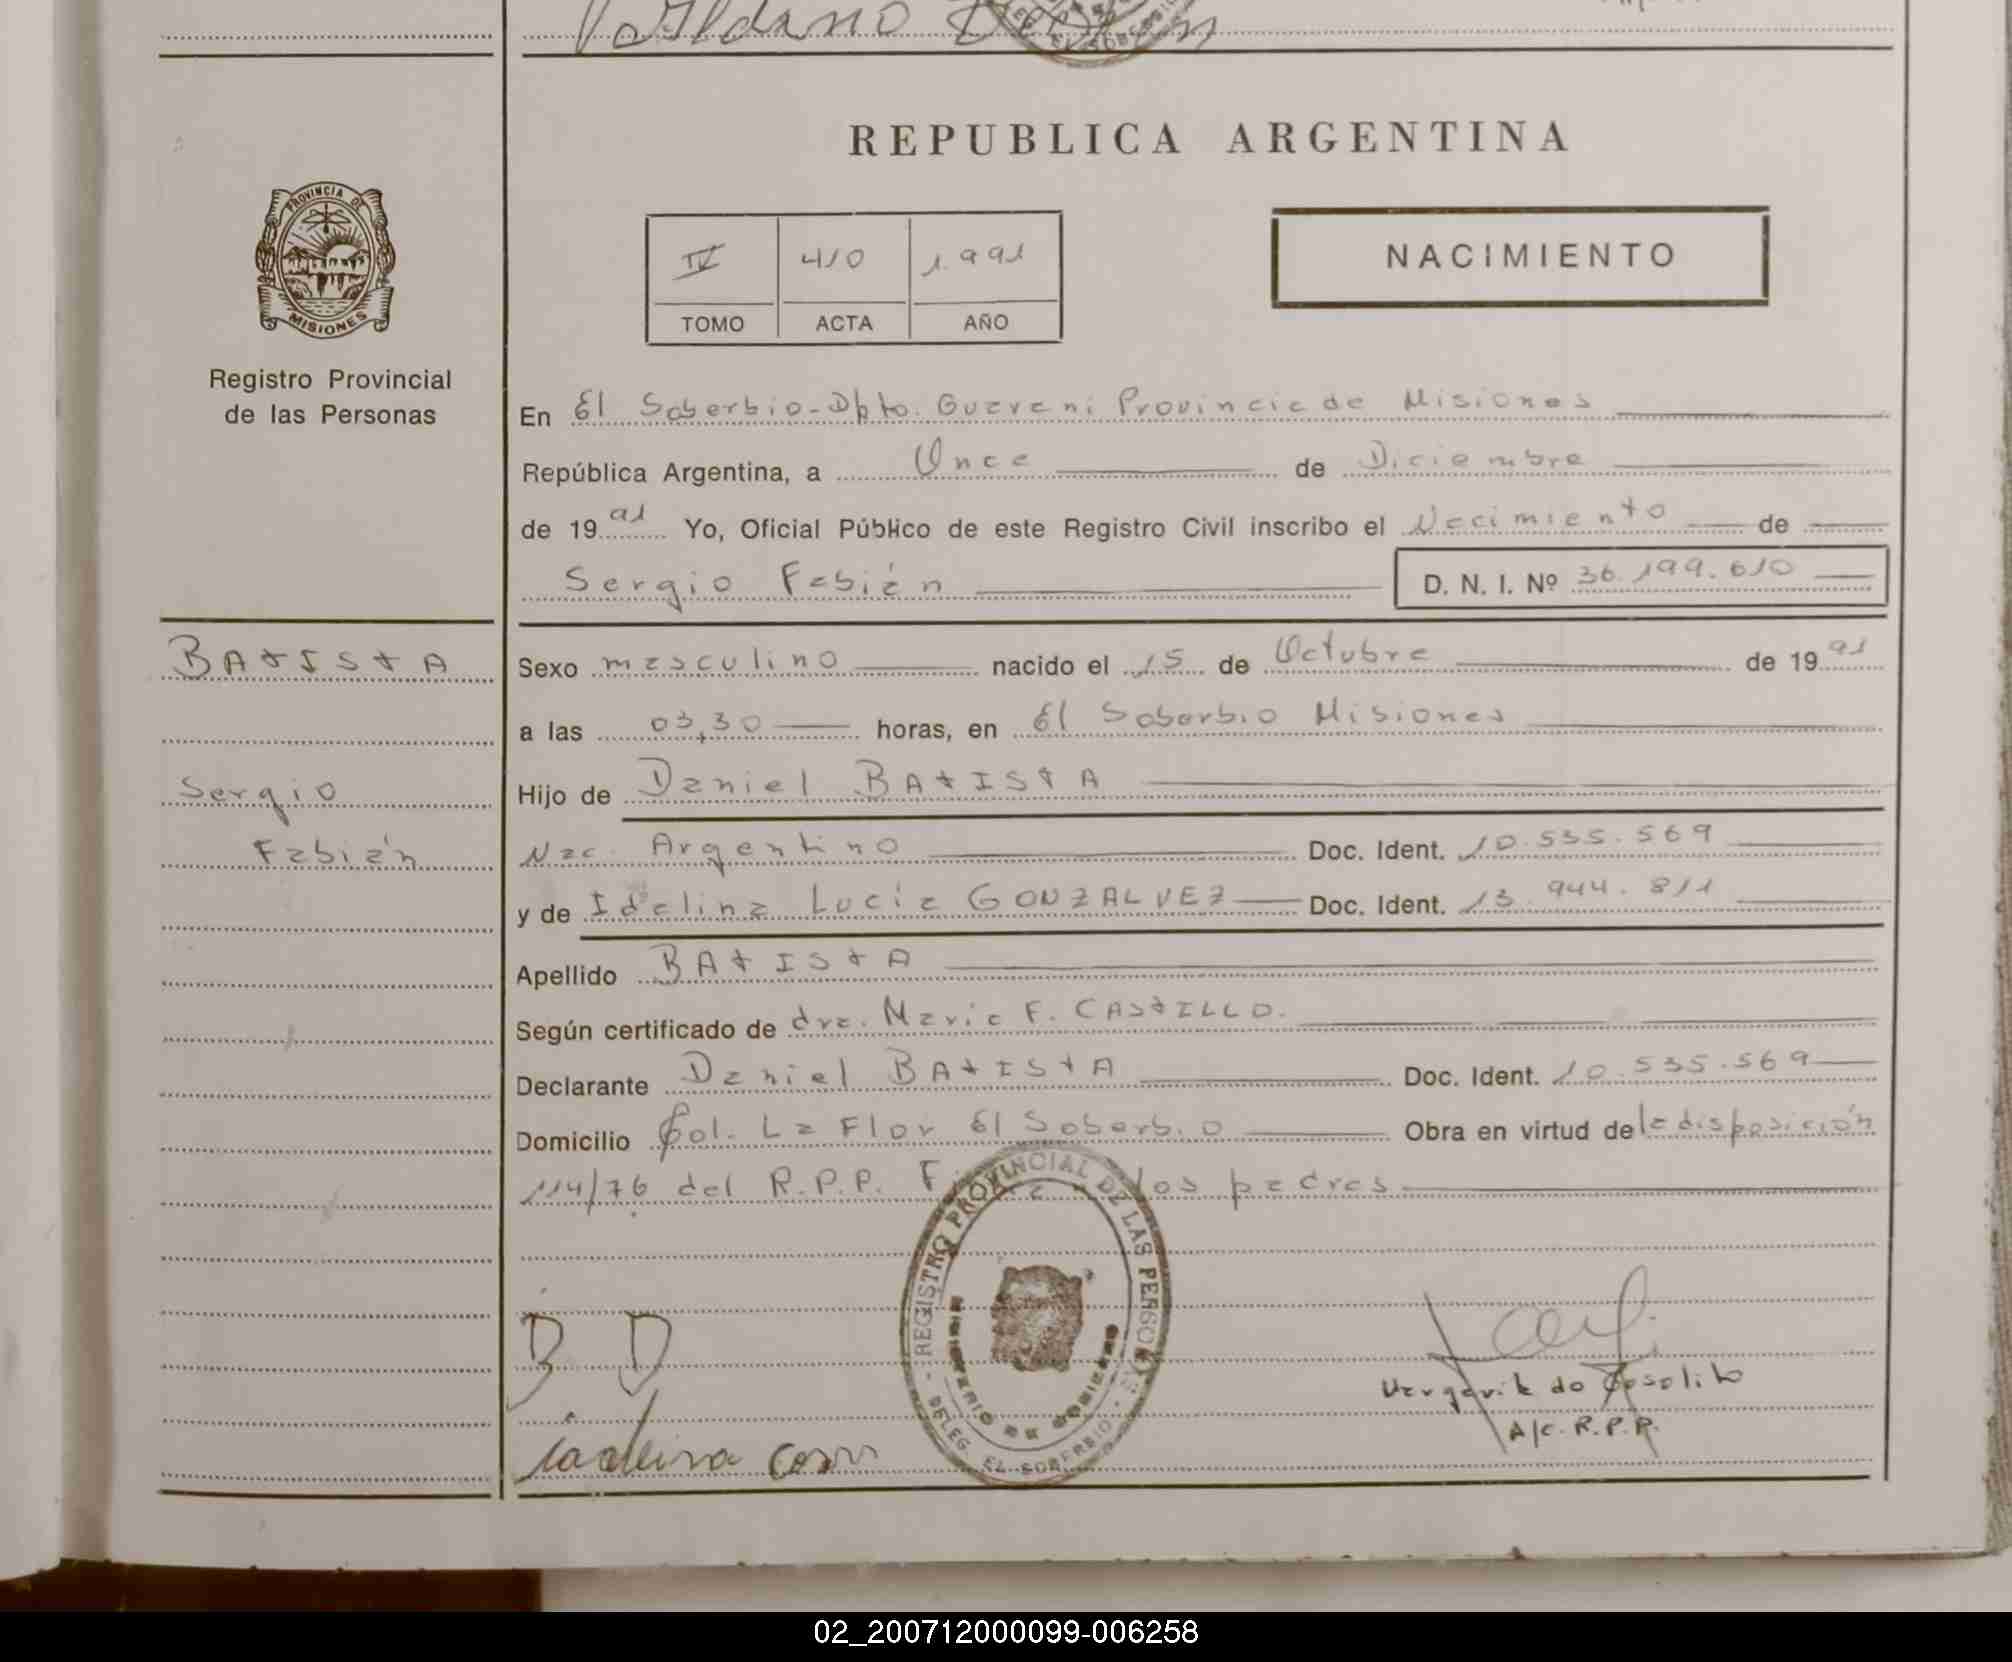 REPUBLICA ARGENTINA
PROVINCIA DE
MISIONES
Registro Provincial
de las Personas
IV 410 1.991
TOMO ACTA AÑO
NACIMIENTO
En El Soberbio-Dpto. Guarani Provincia de Misiones
República Argentina, a Once de Diciembre
de 1991 Yo, Oficial Público de este Registro Civil inscribo el Nacimiento de
Sergio Fabián D. N. I. Nº 36.199.610
BATISTA
Sergio
Fabián
Sexo masculino nacido el 15 de Octubre de 1991
a las 03,30 horas, en El Soberbio Misiones
Hijo de Daniel BATISTA
Nac. Argentino Doc. Ident. 10.535.569
y de Idalina Lucía GONZALVEZ Doc. Ident. 13.944.811
Apellido BATISTA
Según certificado de dra. Maria F. CASTILLO.
Declarante Daniel BATISTA Doc. Ident. 10.535.569
Domicilio Col. La Flor El Soberbio Obra en virtud de la disposición
114/76 del R.P.P. los padres
REGISTRO PROVINCIAL DE LAS PERSONAS
MINISTERIO DE GOBIERNO
DELEG. EL SOBERBIO
B D
A/C. R.P.P.
02_200712000099-006258